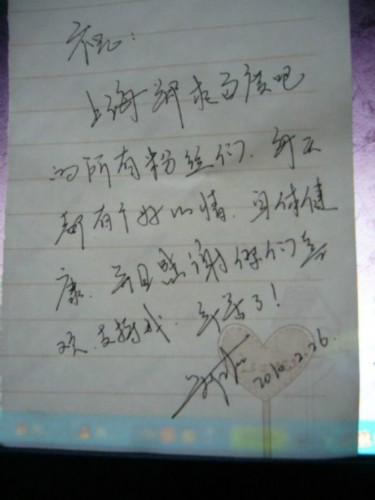 祝:
上海 求百度吧
的所有粉丝们、每天
都有个好心情、身体健
康、并且感谢你们喜
欢、支持我、辛苦了!
2010.2.26.